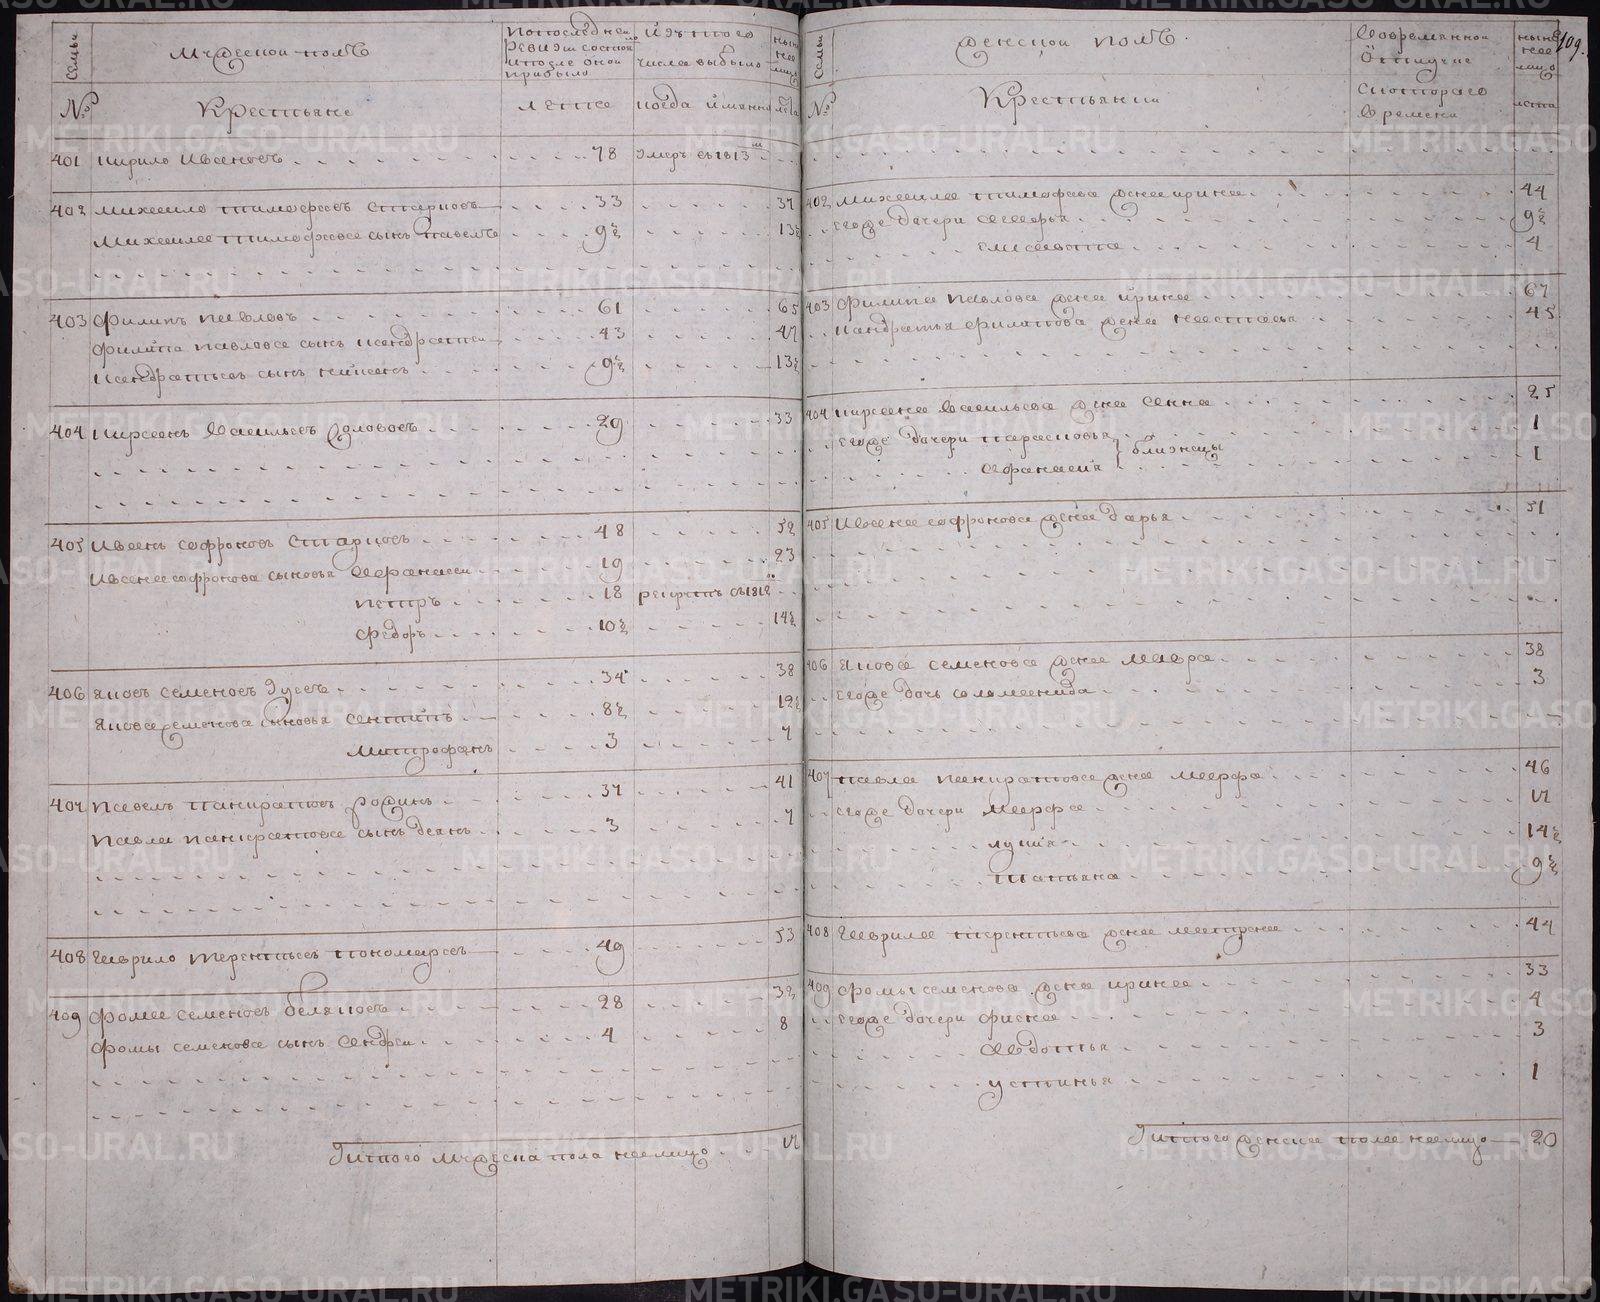 Семьи
Мужескои полъ
По последнеи
ревизи состоя
ло
и после онои
прибыло
Изъ того
числа выбыло
ныне
нее
лицо
№
Крестьяне
лета
когда имянно
лета
401 Кирило Ивановъ 78 Умеръ въ 1813м
402 Михаило Тимофеевъ Старцовъ 33 37
Михаила Тимофеева сынъ Павелъ 9½ 13½
403 Филипъ Павловъ 61 65
Филипа Павлова сынъ Кондратеи 43 47
Кондратьевъ сынъ 9½ 13½
404 Кирсанъ Васильевъ 29 33
405 Иванъ Софроновъ Старцовъ 48 52
Ивана Софронова сыновья Афанасеи 19 23
Петръ 18 рекрутъ въ 1812го
Федоръ 10½ 14½
406 Яковъ Семеновъ Гусевъ 34 38
Якова Семенова сыновья Антипъ 8½ 12½
Митрофанъ 3 7
407 Павелъ Панкратовъ Родинъ 37 41
Павла Панкратова сынъ 3 7
408 Гаврило Терентьевъ Пономаревъ 49 53
409 Фома Семеновъ Беляковъ 28 32
Фомы Семенова сынъ Андреи 4 8
Итого мужеска пола налицо 17
109.
Семьи
Женскои полъ
Во временной
отлучке
ныне
нее
лицо
№
Крестьянки
С котораго
времени
лета
402 Михаила Тимофеева жена Ирина 44
Егоже дочери Агафья 9½
Елисавета 4
403 Филипа Павлова жена Ирина 67
Кондратья Филипова жена Настасья 45
404 Кирсана Васильева жена Анна 25
Егоже дочери 1
Афанасия } близнецы 1
405 Ивана Софронова жена Дарья 51
406 Якова Семенова жена Мавра 38
Егоже дочь Соломанида 3
407 Павла Панкратова жена Марфа 46
Егоже дочери Марфа 17
Лукия 14½
Татьяна 9½
408 Гаврила Терентьева жена Матрена 44
409 Фомы Семенова жена Ирина 33
Егоже дочери 4
Авдотья 3
Устинья 1
Итого женска пола налицо 20
METRIKI.GASO-URAL.RU